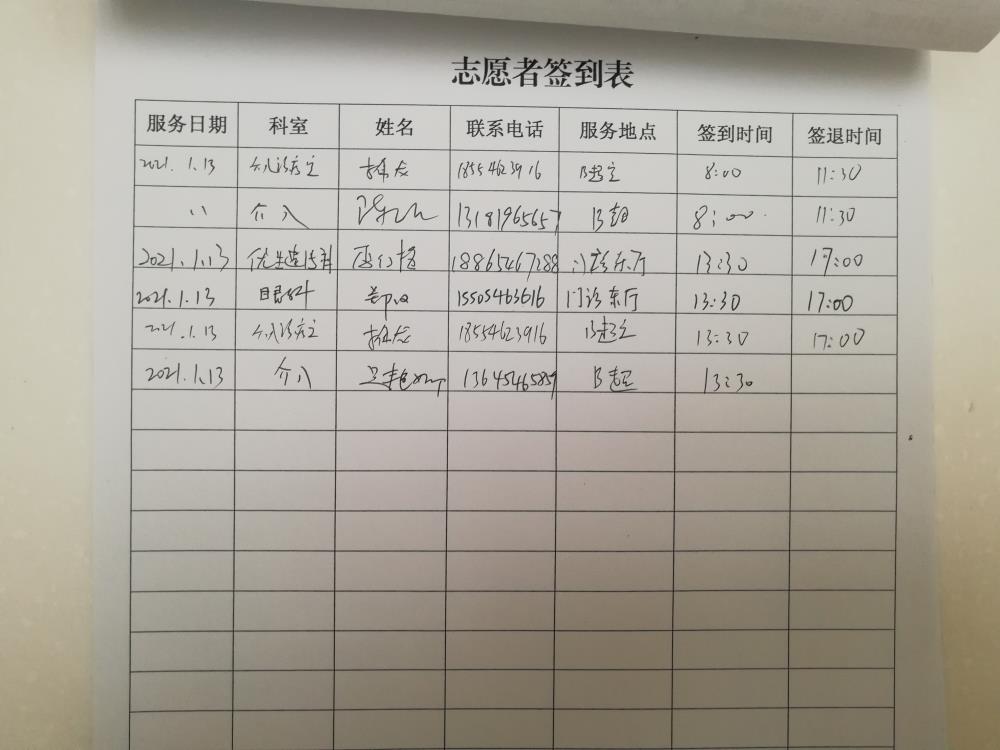 志愿者签到表
服务日期 科室 姓名 联系电话 服务地点 签到时间 签退时间
2021.1.13 18554623916 B超 8:00 11:30
〃 介入 13181965657 B超 8:00 11:30
2021.1.13 优生遗传科 18865467288 门诊东厅 13:30 17:00
2021.1.13 眼科 郑 15505463616 门诊东厅 13:30 17:00
2021.1.13 18554623916 B超 13:30 17:00
2021.1.13 介入 13645465859 B超 13:30